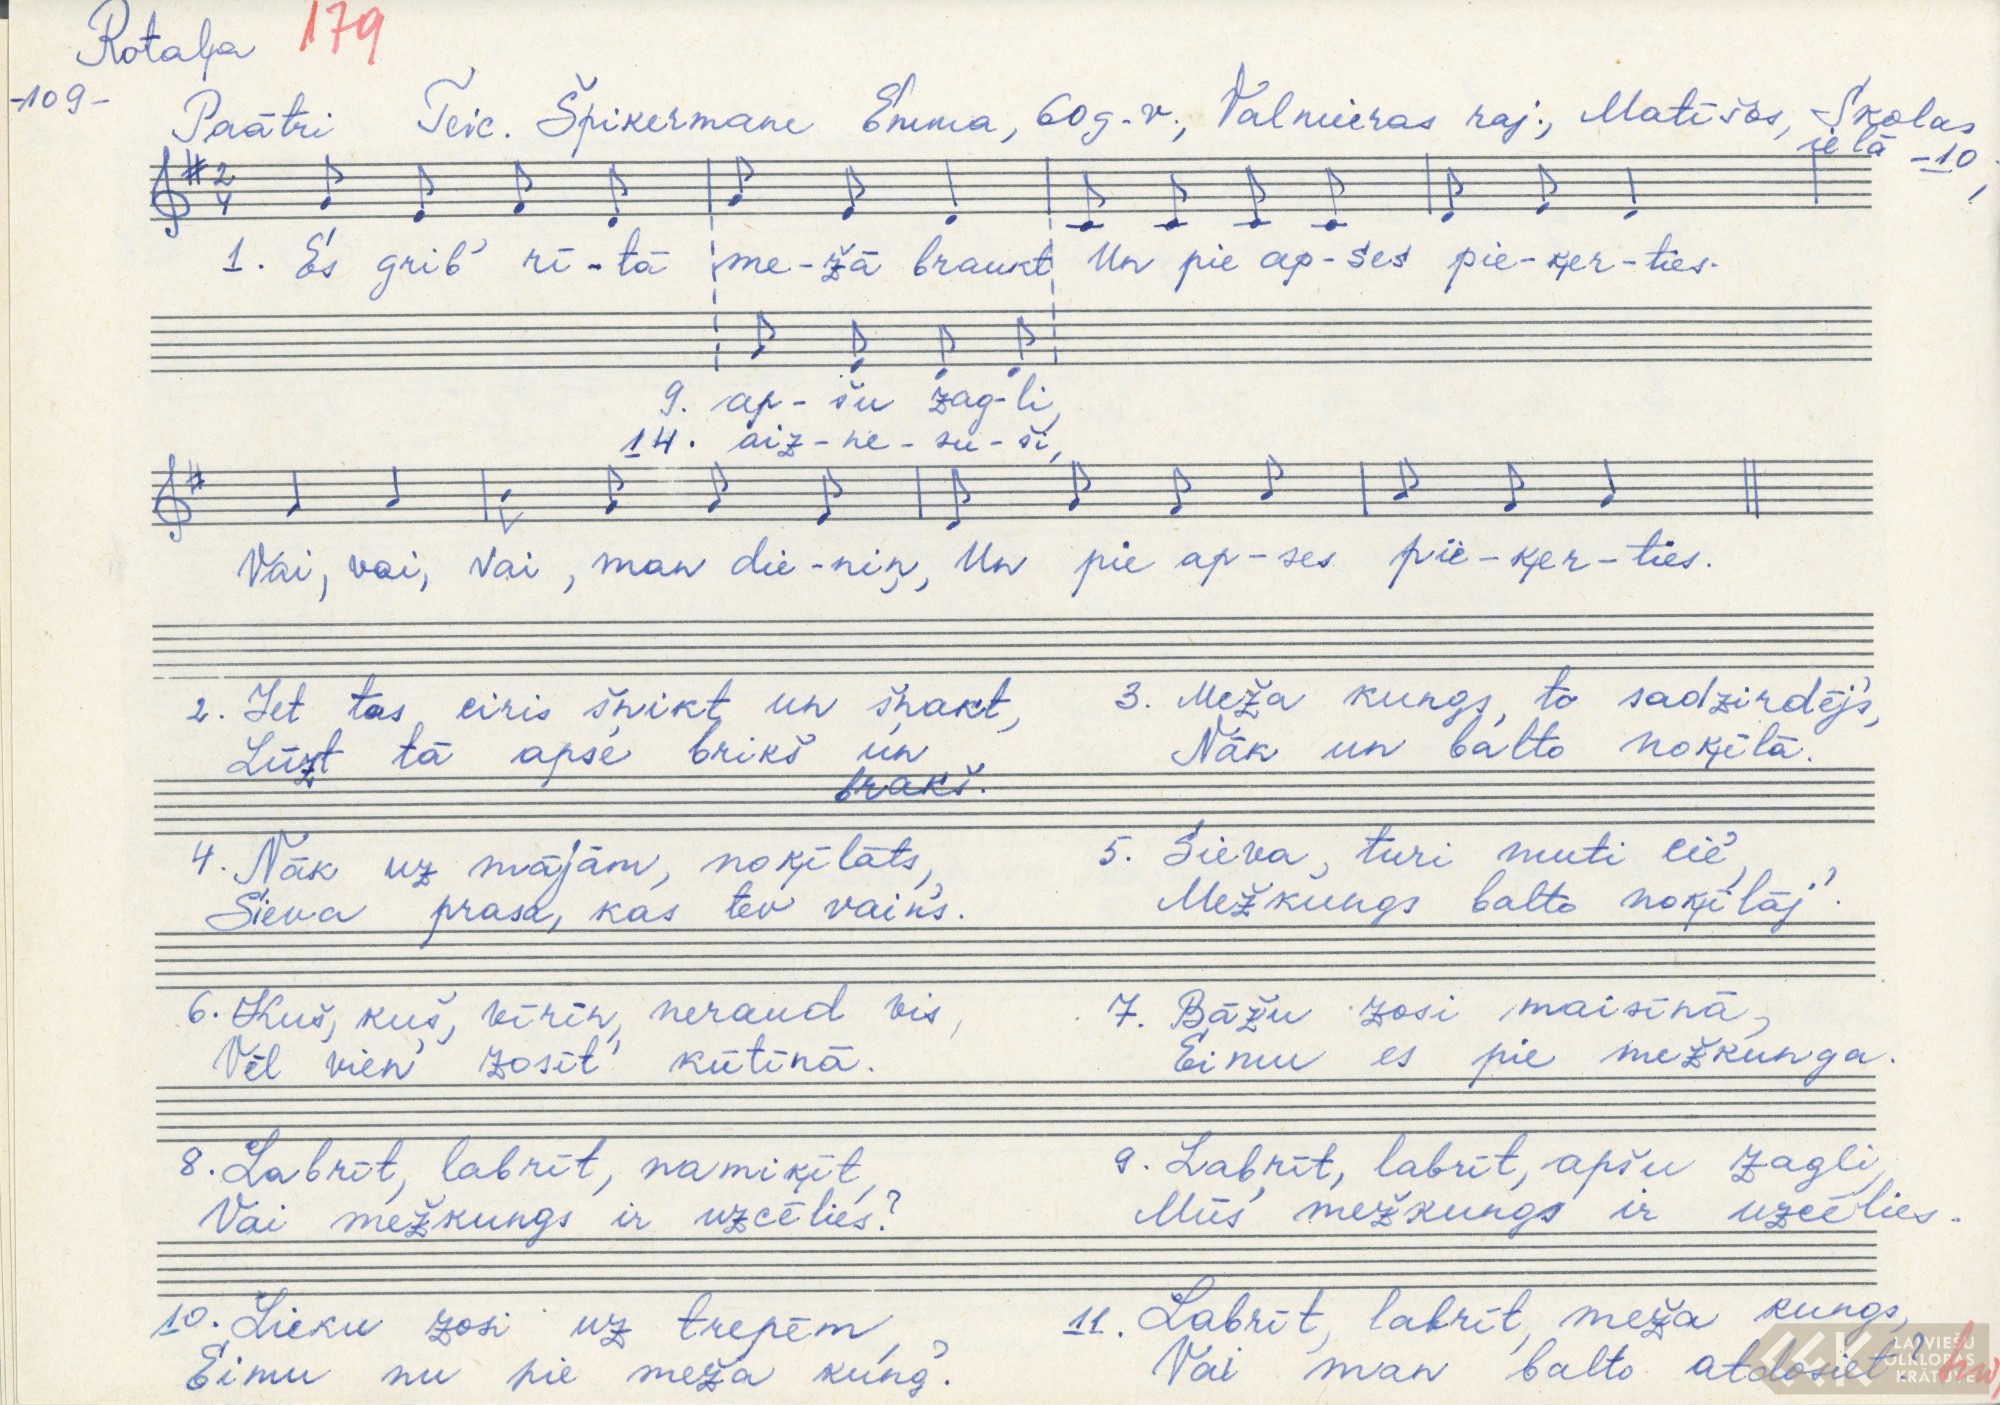 Rotaļa 179
-109-
Paātri Teic. Špikermane Emma, 60 g. v., Valmieras raj., Matīšos, Skolas
ielā -10,
2
4
1. Es grib' rī-tā me-žā braukt Un pie ap-ses pie-ķer-ties.
9. ap-šu zag-li,
14. aiz-ne-su-ši,
Vai, vai, vai, man die-niņ, Un pie ap-ses pie-ķer-ties.
2. Iet tas ciris šņikt un šņakt,
Lūzt tā apse brikš un
brakš.
3. Meža kungs, to sadzirdējs,
Nāk un balto noķīlā.
4. Nāk uz mājām, noķīlāts,
Sieva prasa, kas tev vainš.
5. Sieva, turi muti cie',
Mežkungs balto noķīlāj'.
6. Kuš, kuš, vīriņ, neraud vis,
Vēl vien' zosīt' kūtiņā.
7. Bāžu zosi maisiņā,
Eimu es pie mežkunga.
8. Labrīt, labrīt, namiķīt,
Vai mežkungs ir uzcēlies?
9. Labrīt, labrīt, apšu zagli,
Mūs' mežkungs ir uzcēlies.
10. Lieku zosi uz trepēm,
Eimu nu pie meža kung'.
11. Labrīt, labrīt, meža kungs,
Vai man balto atdosiet?
LATVIEŠU
FOLKLORAS
KRĀTUVE